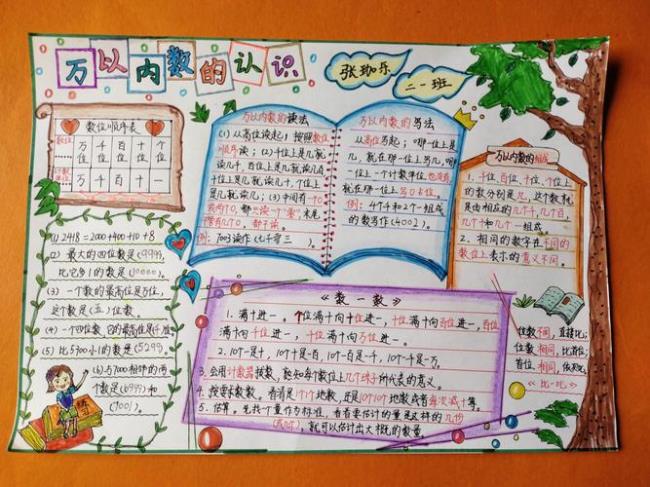 万以内数的认识
张珈乐
二一班
数位顺序表
数位
万位 千位 百位 十位 个位
计数单位
万 千 百 十 一
(1) 2418=2000+400+10+8
(2) 最大的四位数是(9999),
比它多1的数是(10000)。
(3) 一个数的最高位是万位,
这个数是(五)位数
(4) 一个四位数,它的最高位是千位
(5) 比5700小1的数是
(6) 与7000相邻的两
个数是(6999)和
(7001)。
万以内数的读法
(1)从高位读起,按照数位
顺序读;(2)千位上是几就
读几千,百位上是几就读几百
十位上是几就读几十,个位上
是几就读几;(3)中间有一个0
或两个0,都只读一个"零"末尾
不读。
例:7003读作(七千零三)。
万以内数的写法
从高位写起;哪一位上是
几,就在那一位上写几,哪
一位上一个计数单位也没有
就在哪一位上写0占位。
例:4个千和2个一组成
的数写作(4002)。
万以内数的组成
1.千位、百位、十位、个位上
的数分别是几,这个数就
是由相应的几个千,几个百,
几个十和几个一组成。
2.相同的数字在不同的
数位上表示的意义不同。
《数一数》
1.满十进一。个位满十向十位进一,十位满十向百位进一,百位
满十向千位进一,千位满十向万位进一。
2.10个一是十,10个十是百,10个一百是千,10个一千是万。
3.会用计数器拨数,能知每个数位上几个珠子所代表的意义。
4.按要求数数。看清是1个1个地数,还是10个10个地数或者
5.估算。先找一个量作为标准,看看要估计的量是这样的几份
就可以估计出大概的数量
位数不同,直接比;
位数相同,比首位;
首位相同,依次比。
《比一比》